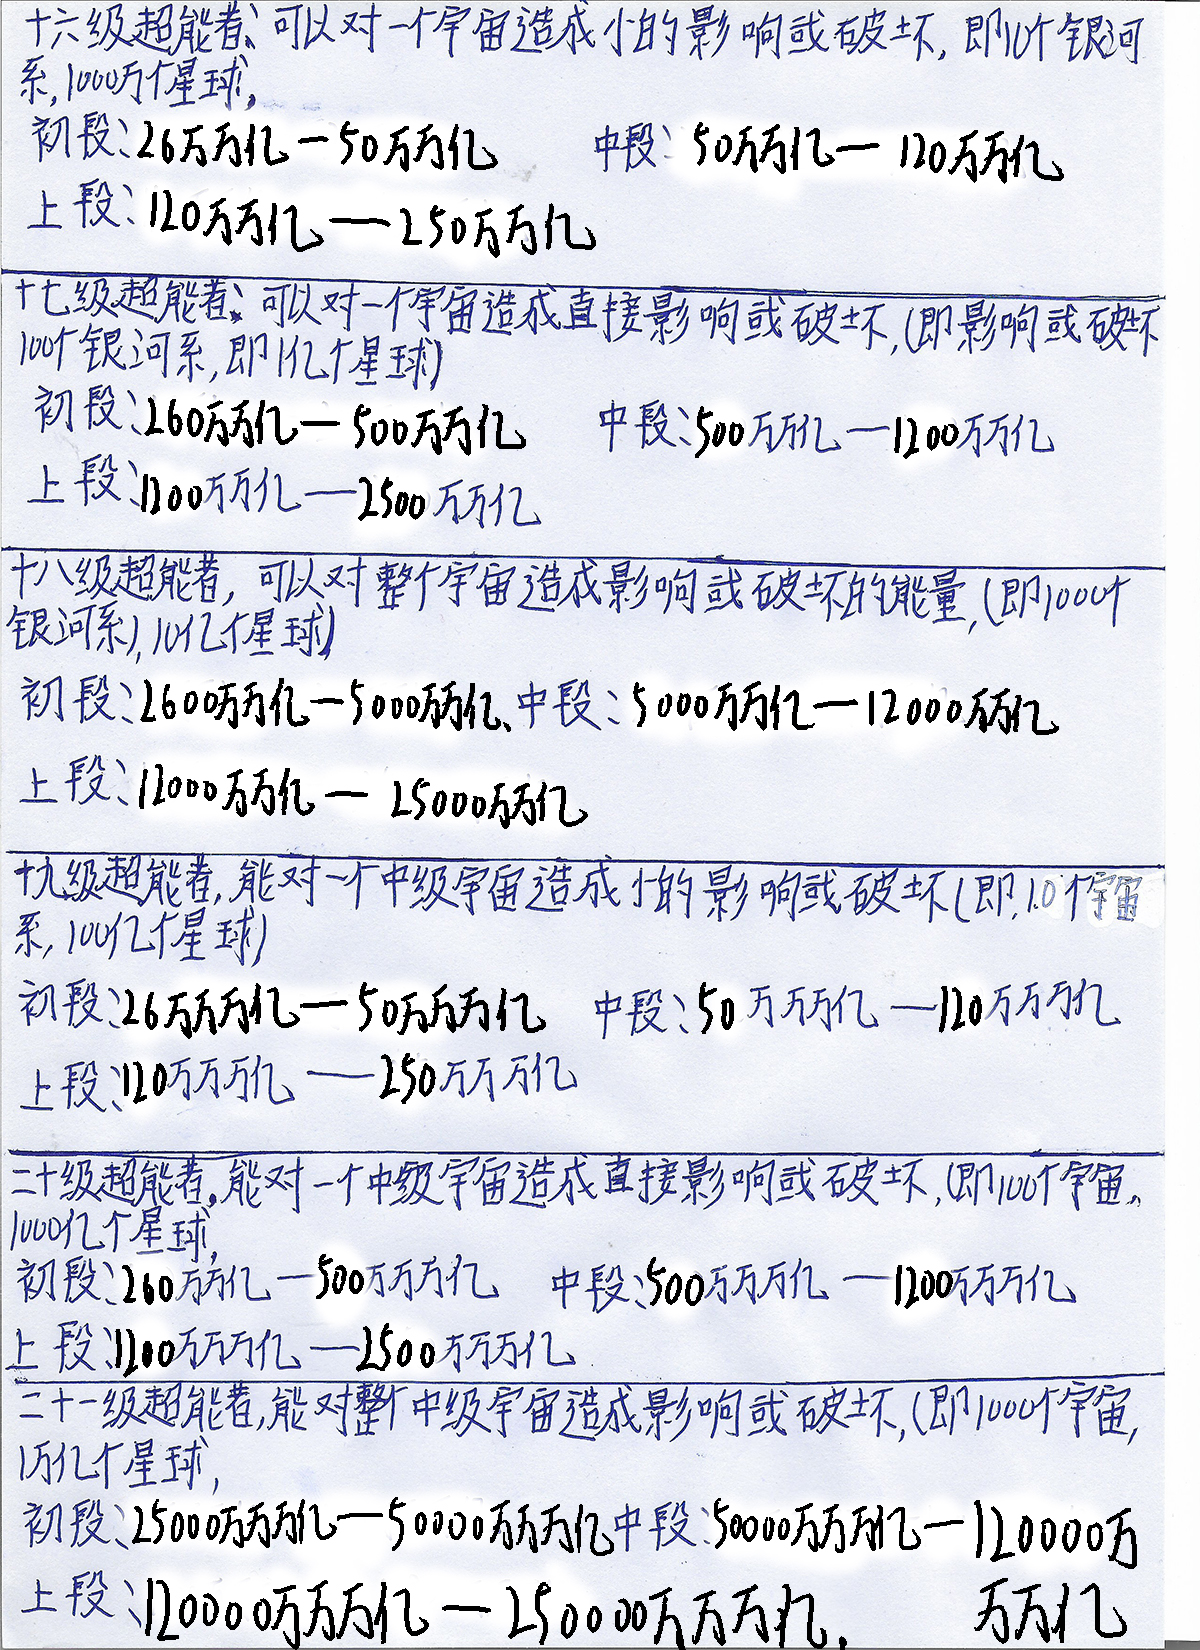 十六级超能者、可以对一个宇宙造成小的影响或破坏,即10个银河
系,1000万个星球,
初段:26万万亿—50万万亿 中段:50万万亿—120万万亿
上段:120万万亿—250万万亿
十七级超能者、可以对一个宇宙造成直接影响或破坏,(即影响或破坏
100个银河系,即1亿个星球)
初段:260万万亿—500万万亿 中段:500万万亿—1200万万亿
上段:1200万万亿—2500万万亿
十八级超能者,可以对整个宇宙造成影响或破坏的能量,(即1000个
银河系),10亿个星球)
初段:2600万万亿—5000万万亿、中段:5000万万亿—12000万万亿
上段:12000万万亿—25000万万亿
十九级超能者,能对一个中级宇宙造成小的影响或破坏(即,10个宇宙
系,100亿个星球)
初段:26万万万亿—50万万万亿 中段:50万万万亿—120万万万亿
上段:120万万万亿—250万万万亿
二十级超能者,能对一个中级宇宙造成直接影响或破坏,(即100个宇宙,
1000亿个星球,
初段:260万万亿—500万万万亿 中段:500万万万亿—1200万万万亿
上段:1200万万万亿—2500万万万亿
二十一级超能者,能对整个中级宇宙造成影响或破坏,(即1000个宇宙,
1万亿个星球,
初段:25000万万万亿—50000万万万亿中段:50000万万万亿—120000万
上段:120000万万万亿—250000万万万亿. 万万亿